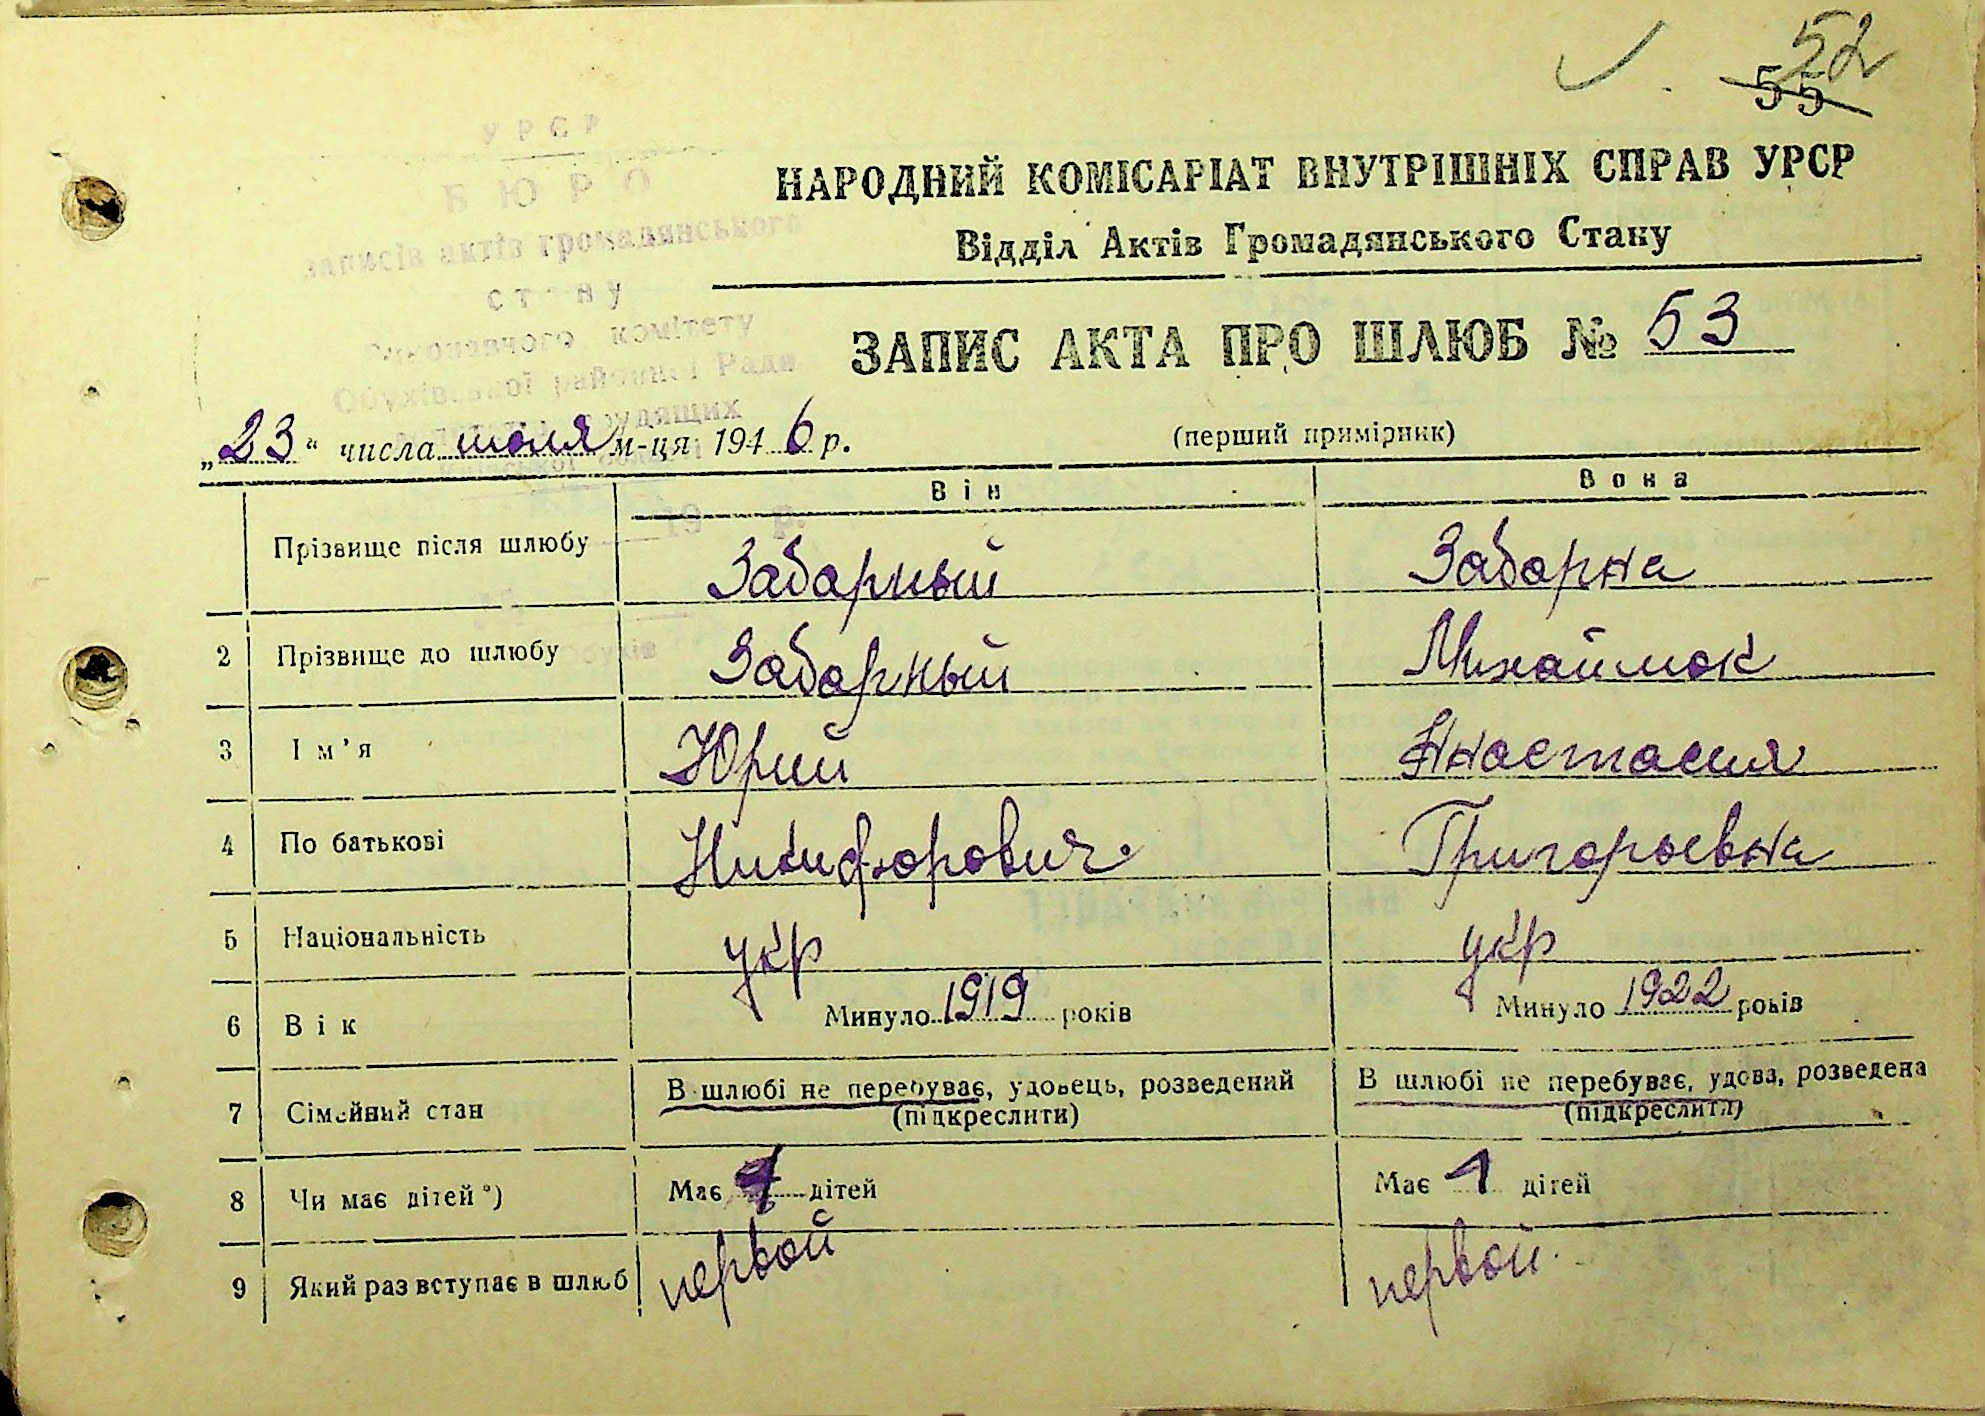 52
55
УРСР
БЮРО
записів актів громадянського
стану
Виконавчого комітету
Обухівської районної Ради
трудящих
НАРОДНИЙ КОМІСАРІАТ ВНУТРІШНІХ СПРАВ УРСР
Відділ Актів Громадянського Стану
ЗАПИС АКТА ПРО ШЛЮБ № 53
„23“ числа июля м-ця 1946 р.
(перший примірник)
Він Вона
Прізвище після шлюбу Забарный Забарна
2 Прізвище до шлюбу Забарный Михаймок
3 Ім’я Юрий Анастасия
4 По батькові Никифорович Григорьевна
5 Національність укр укр
6 Вік Минуло 1919 років Минуло 1922 років
7 Сімейний стан В шлюбі не перебуває, удовець, розведений В шлюбі не перебуває, удова, розведена
(підкреслити) (підкреслити)
8 Чи має дітей*) Має 1 дітей Має 1 дітей
9 Який раз вступає в шлюб первой первой